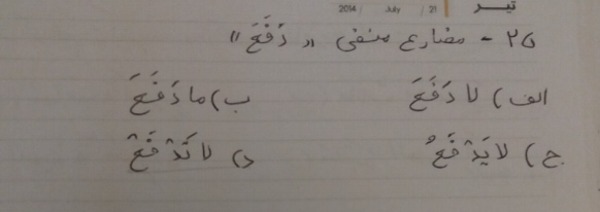 2014 July 21 تیر
۲۵ - مضارع منفی « دَفَعَ »
الف) لا دَفَعَ ب) ما دَفَعَ
ج) لا یَدْفَعُ د) لا تَدْفَعْ